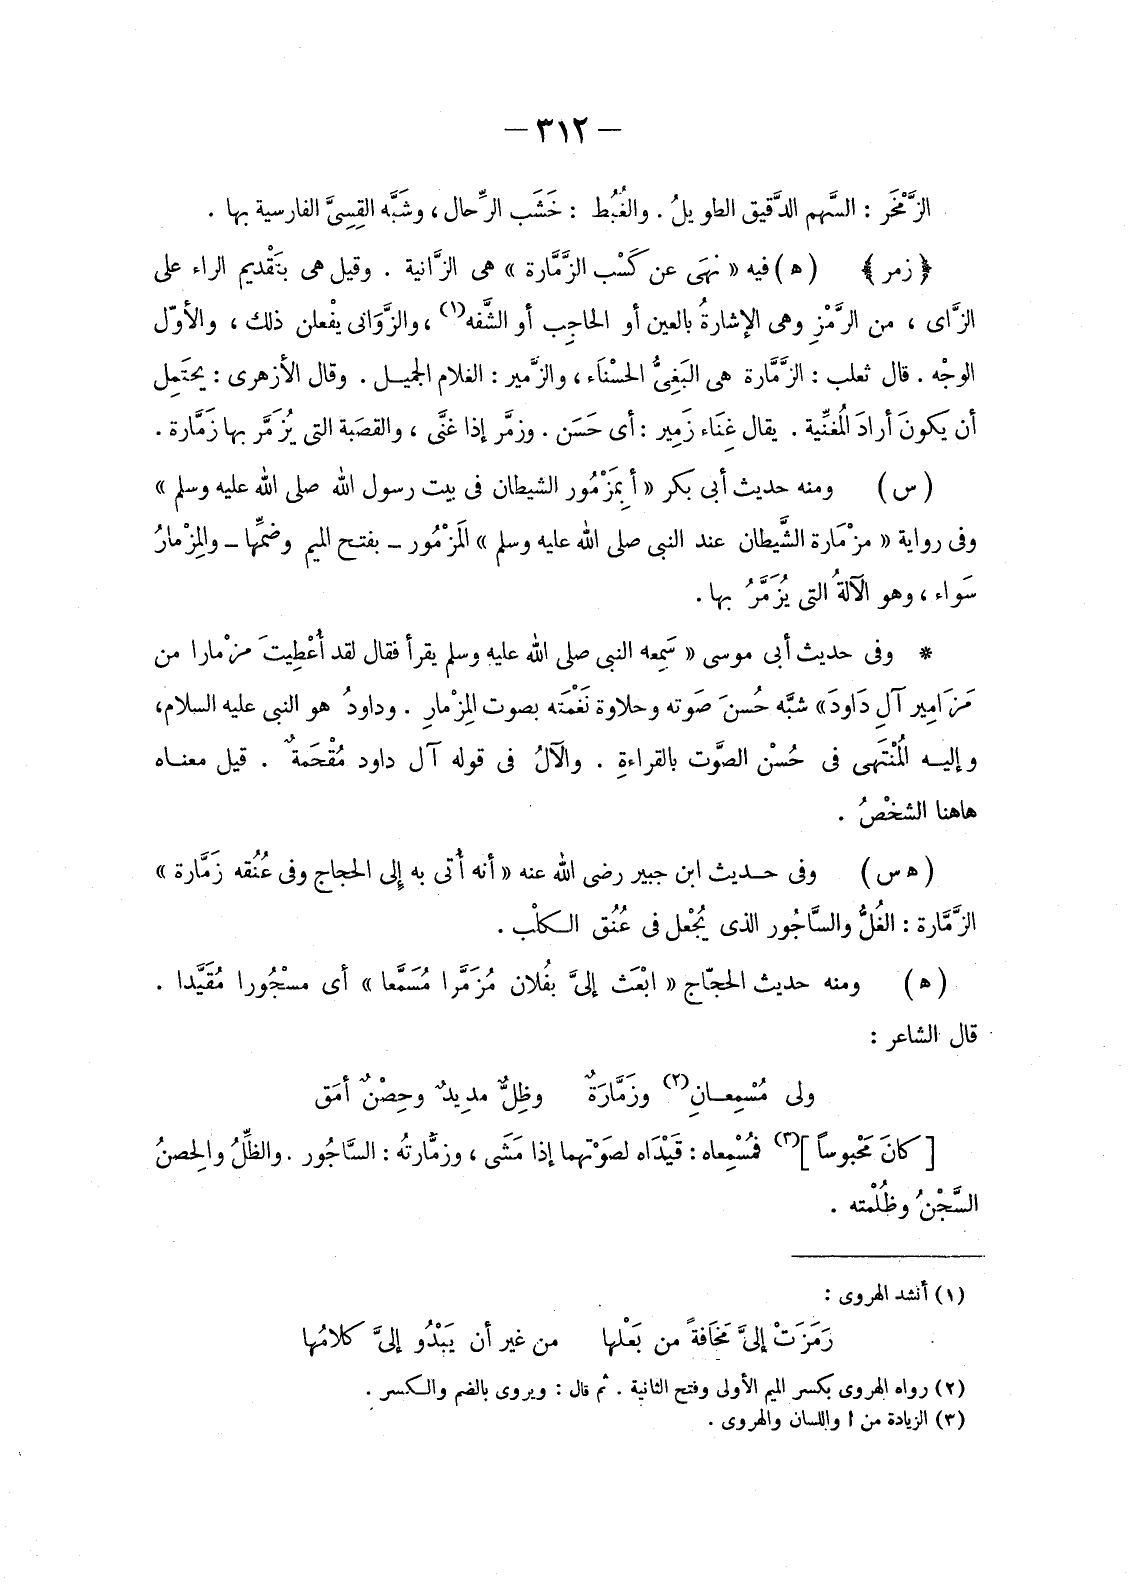 — ٣١٢ —
الزَّمْخَر : السَّهم الدَّقيق الطويلُ . والغُبُط : خَشَب الرِّحال ، وشَبَّه القِسِىَّ الفارسية بها .
﴿ زمر ﴾ ( ه ) فيه « نهَى عن كَسْب الزَّمَّارة » هى الزَّانية . وقيل هى بتَقْديم الراء على
الزَّاى ، من الرَّمْزِ وهى الإشارةُ بالعين أو الحاجِب أو الشَّفه(١) ، والزَّوَانى يفْعلن ذلك ، والأوّل
الوجْه . قال ثعلب : الزَّمَّارة هى البَغِىُّ الحسْنَاء ، والزَّمير : الغلام الجميل . وقال الأزهرى : يحتَمِل
أن يكونَ أرادَ المُغنِّية . يقال غِنَاء زَمِير : أى حَسَن . وزمَّر إذا غنَّى ، والقصَبة التى يُزَمَّر بها زَمَّارة .
( س ) ومنه حديث أبى بكر « أبِمَزْمُور الشيطان فى بيت رسول الله صلى الله عليه وسلم »
وفى رواية « مزْمَارة الشَّيطان عند النبى صلى الله عليه وسلم » المَزْمُور ــ بفتح الميم وضمِّها ــ والمِزْمارُ
سَواء ، وهو الآلةُ التى يُزَمَّرُ بها .
* وفى حديث أبى موسى « سَمِعه النبى صلى الله عليه وسلم يقرأ فقال لقد أُعْطِيتَ مزْمارا من
مَزَامِير آلِ دَاودَ » شبَّه حُسنَ صَوته وحلاوة نَغْمَته بصوت المِزْمارِ . وداودُ هو النبى عليه السلام،
وإليه المُنْتَهى فى حُسْن الصَّوت بالقراءةِ . والآلُ فى قوله آل داود مُقْحَمةٌ . قيل معناه
هاهنا الشخْصُ .
( ه س ) وفى حديث ابن جبير رضى الله عنه « أنه أُتى به إلى الحجاج وفى عُنُقه زَمَّارة »
الزَّمَّارة : الغُلُّ والسَّاجُور الذى يُجْعل فى عُنُق الكلْب .
( ه ) ومنه حديث الحجّاج « ابْعَث إلىَّ بفُلان مُزَمَّرا مُسَمَّعا » أى مسْجُورا مُقَيَّدا .
قال الشاعر :
ولى مُسْمِعانِ(٢) وزَمَّارَةٌ وظِلٌّ مديدٌ وحِصْنٌ أمَق
[ كانَ مَحْبوساً ](٣) فمُسْمِعاه : قَيْدَاه لصَوْتهما إذا مَشَى ، وزمَّارتُه : السَّاجُور . والظِّلُ والحِصنُ
السَّجْنُ وظُلْمته .
(١) أنشد الهروى :
رَمَزَتْ إلىَّ مَخَافةً من بَعْلها من غير أن يَبْدُو إلىَّ كلامُها
(٢) رواه الهروى بكسر الميم الأولى وفتح الثانية . ثم قال : ويروى بالضم والكسر .
(٣) الزيادة من ا واللسان والهروى .